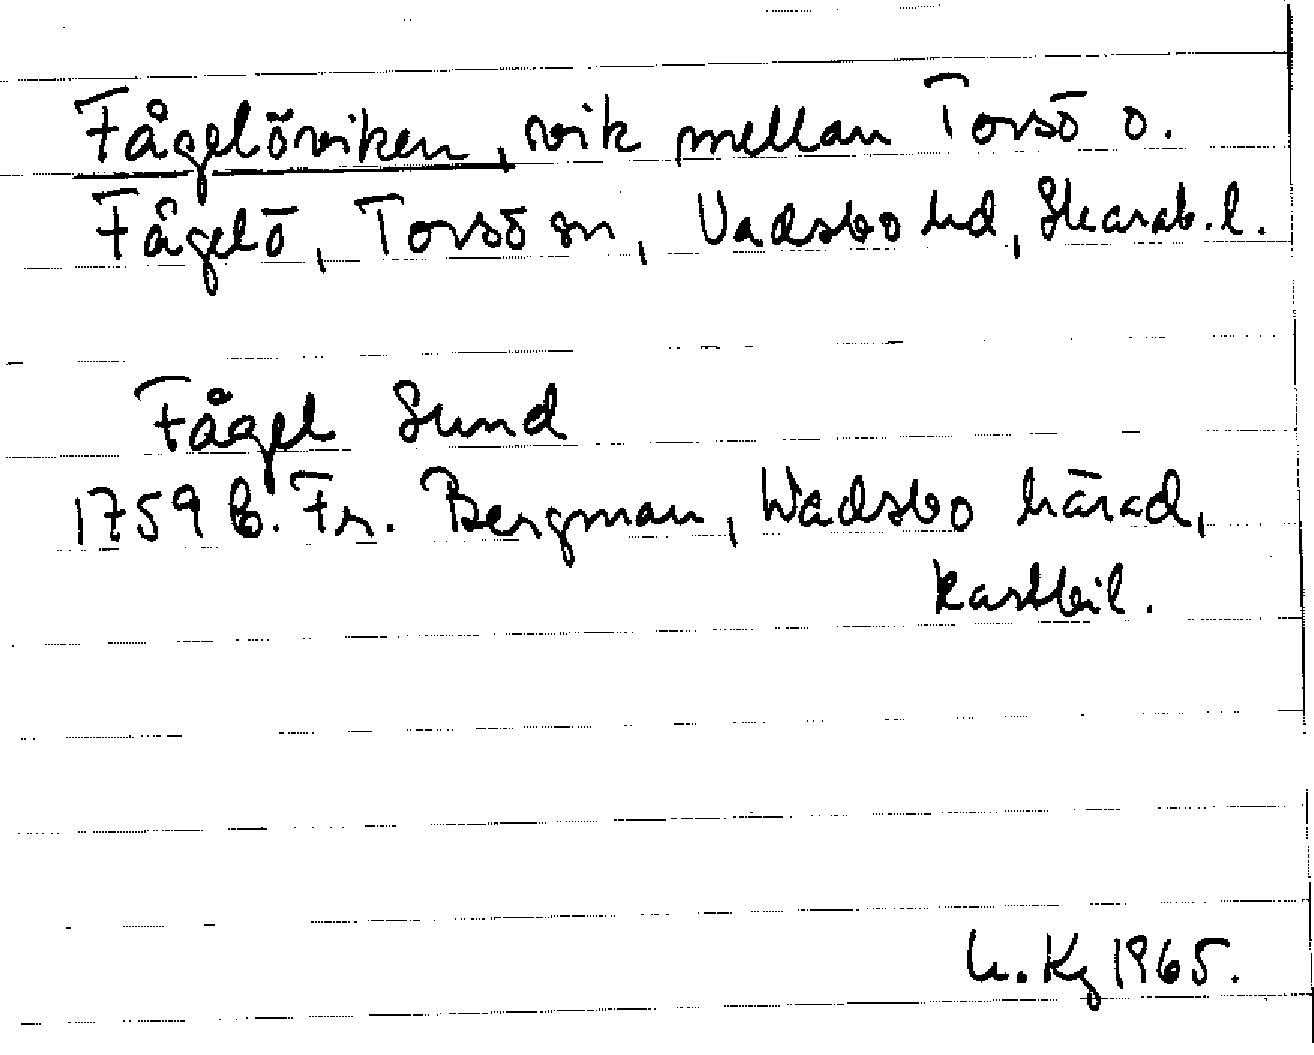 Fågelöviken, vik mellan Torsö o.
Fågelö, Torsö sn, Vadsbo hd, Skarab. l.
Fågel Sund
1759 B. Fr. Bergman, Wadsbo härad,
kartbil.
L. Kg 1965.